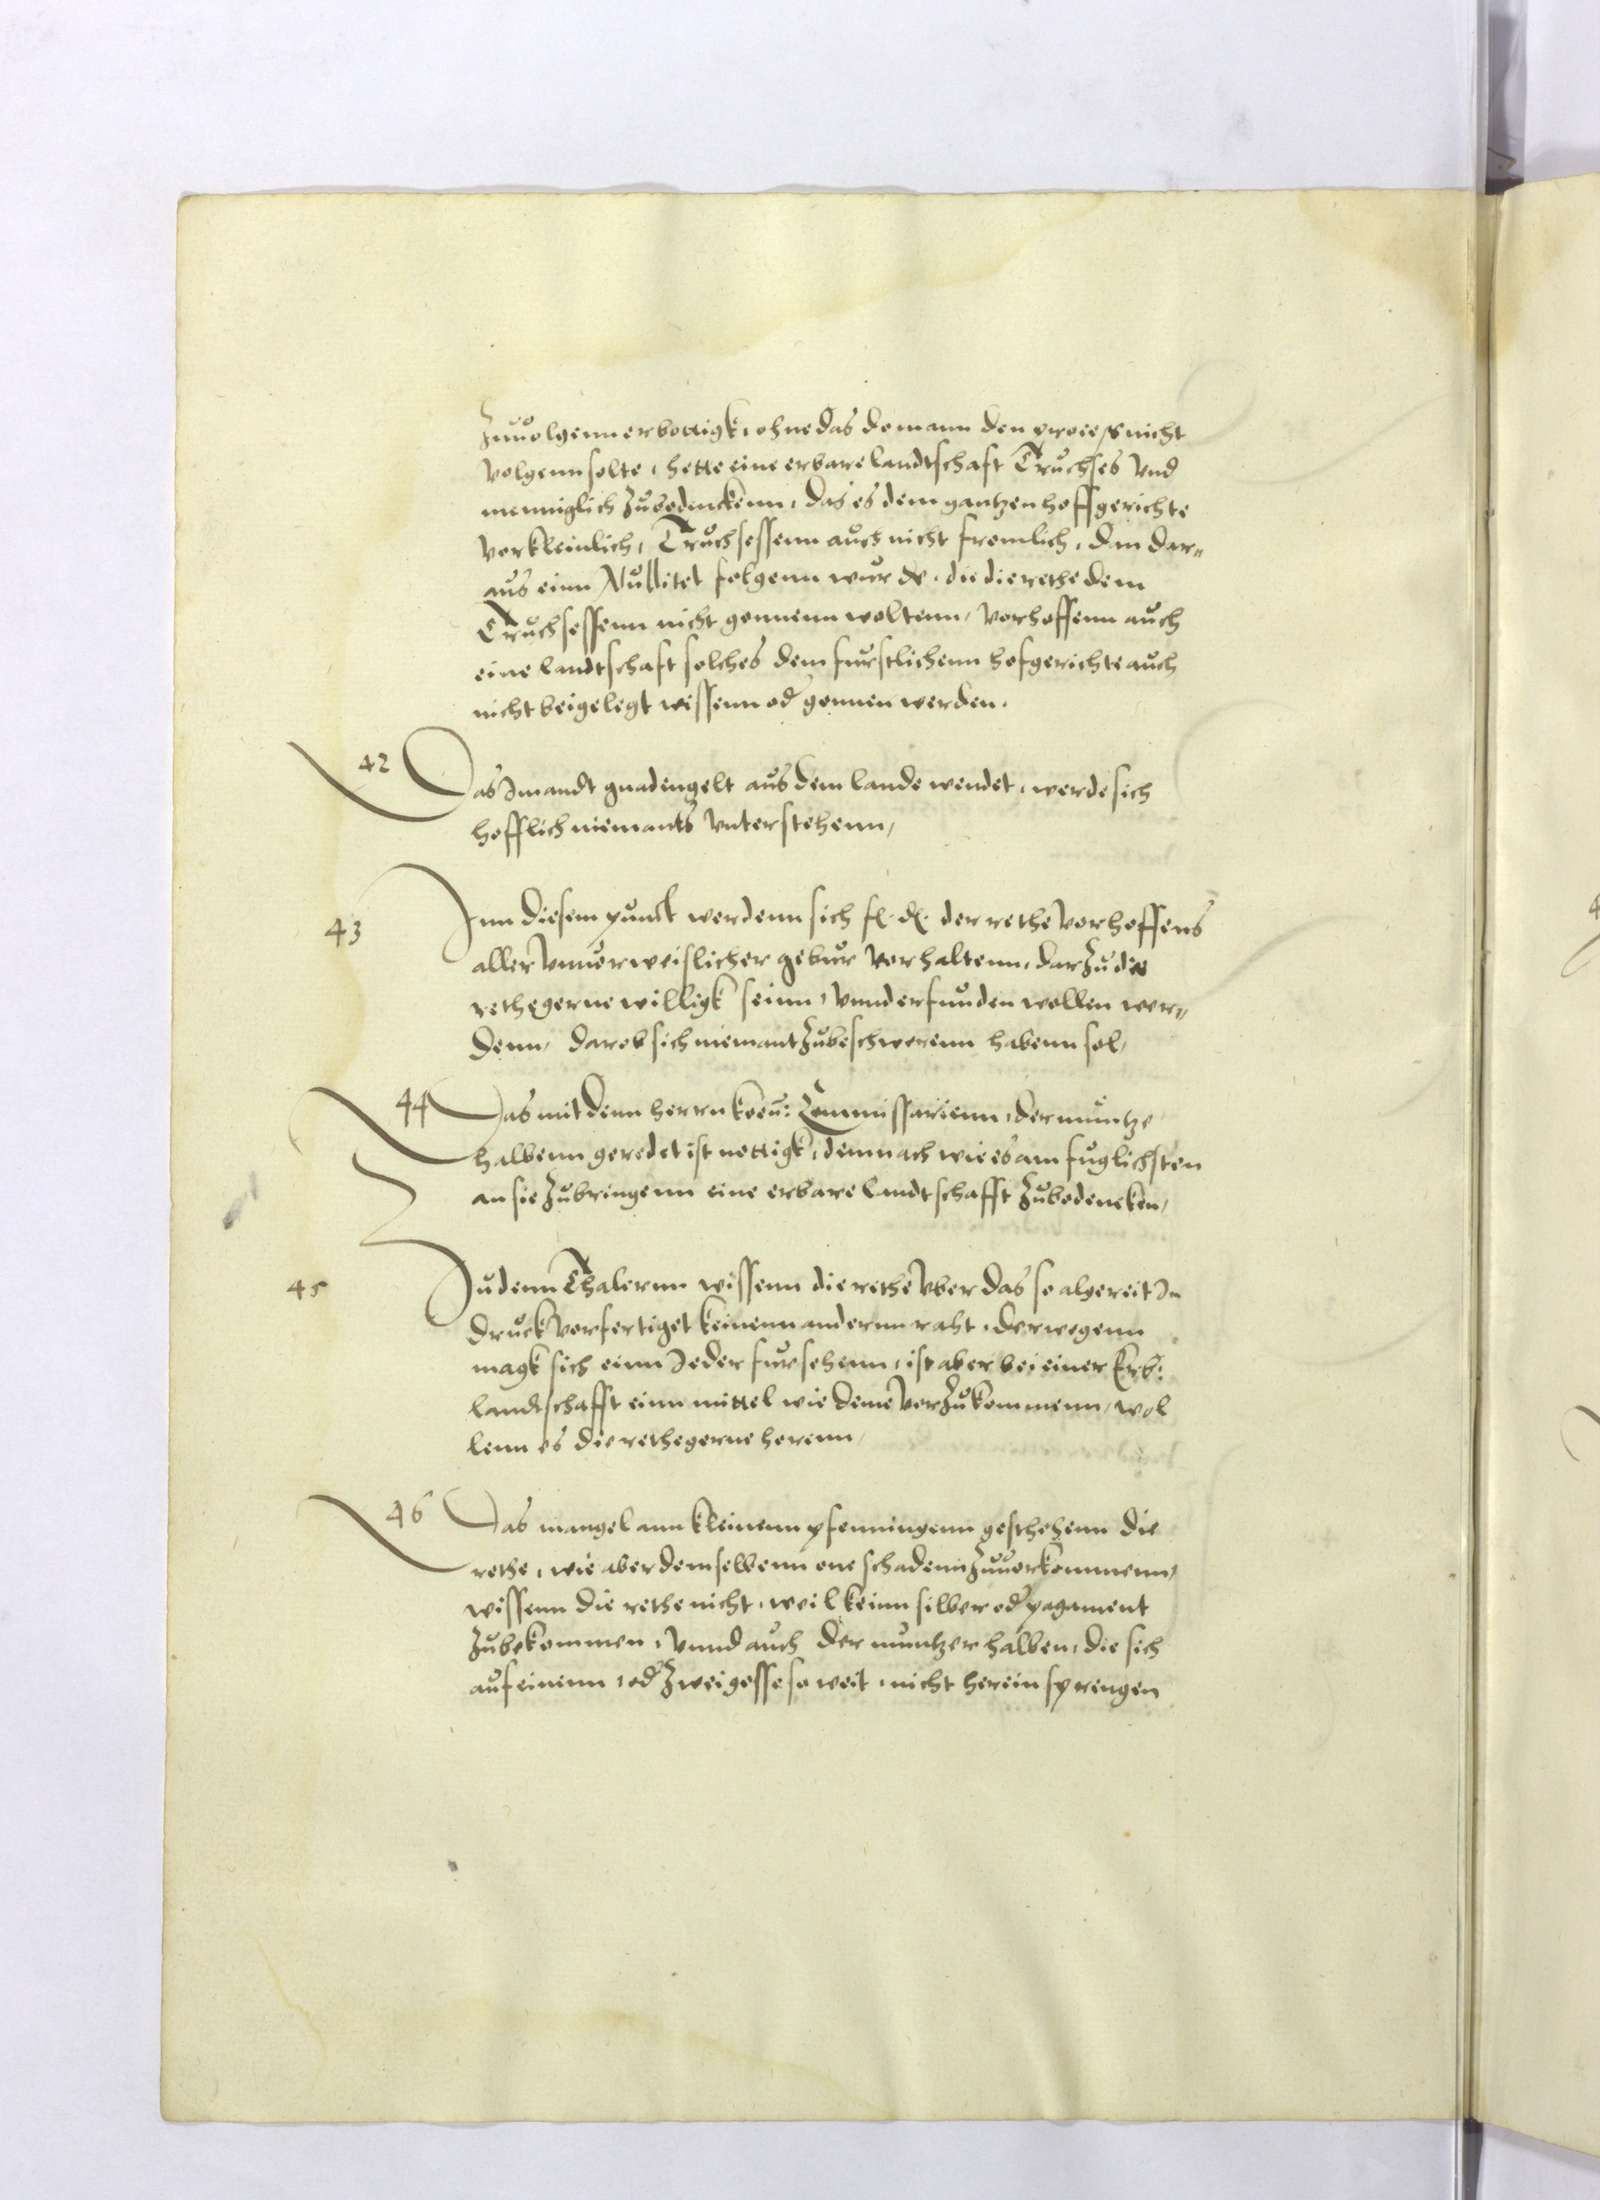 Zuuolgenn erbottigk, ohne das do mann den process nicht
volgenn solte, hette eine erbare landtschaft Truchses vnd
menniglich Zubedenckenn, das es dem gantzen hoffgerichte
vorkleinlich, Truchsessenn auch nicht fromlich, dan dar„
aus einn Nullitet folgenn wurde, die die rethe dem
Truchsessenn nicht gonnenn woltenn, vorhoffenn auch
eine landtschaft solches dem furstlichenn hofgerichte auch
nicht beigelegt wissenn od gonnen werden.
42 Das Imandt gnadengelt aus dem lande wendet, werde sich
hofflich niemants vnterstehenn,
43 Inn diesem punct werdenn sich fl. dl. der rethe vorhoffens
aller vnuerweislicher gebur vorhaltenn, dar Zu die
rethe gerne willigk seinn, vnnd erfunden wollen wer„
denn, darob sich niemant Zubeschwerenn habenn sol,
44 Das mit denn herrn koen: Commissarienn, der muntze
halbenn geredet ist nottigk, demnach wie es am fuglichsten
an sie Zubringenn eine erbare landtschafft Zubedencken,
45 Zu denn Thalernn wissenn die rethe vber das so algereit In
druck vorfertiget keinenn andernn raht, derwegenn
magk sich einn Ieder fursehenn, ist aber bei einer Erb:
landtschafft einn mittel wie deme vorZukommenn, wol
lenn es die rethe gerne horenn,
46 Das mangel ann kleinenn pfenningenn geschehenn die
rethe, wie aber demselbenn one schadenn Zuuorkommenn,
wissenn die rethe nicht, weil keinn silber od pagament
Zubekommen, vnnd auch der muntzer halben, die sich
auf einenn, od Zwei gosse so weit, nicht herein sprengen